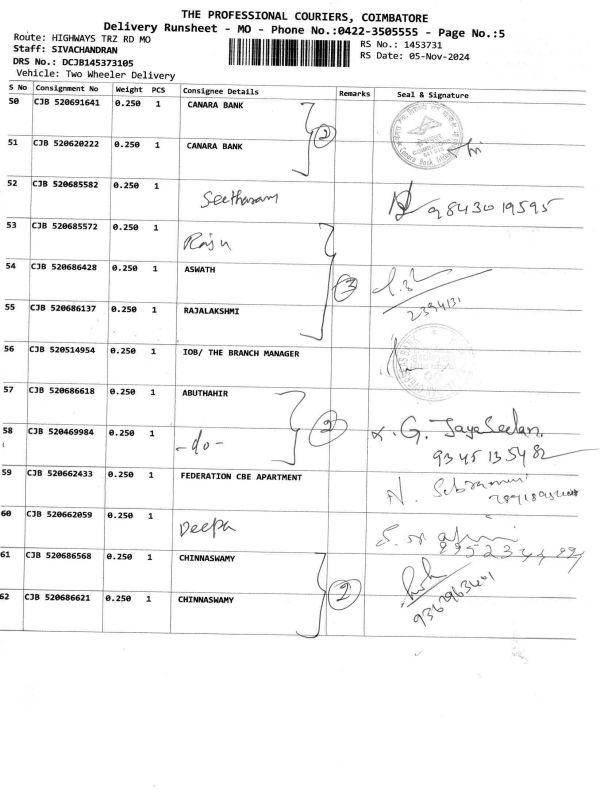 THE PROFESSIONAL COURIERS, COIMBATORE
Delivery Runsheet - MO - Phone No.:0422-3505555 - Page No.:5
Route: HIGHWAYS TRZ RD MO
RS No.: 1453731
Staff: SIVACHANDRAN
RS Date: 05-Nov-2024
DRS No.: DCJB145373105
Vehicle: Two Wheeler Delivery
S No Consignment No Weight PCS Consignee Details Remarks Seal & Signature
50 CJB 520691641 0.250 1 CANARA BANK
2
51 CJB 520620222 0.250 1 CANARA BANK
52 CJB 520685582 0.250 1 Seetharam 9843019595
53 CJB 520685572 0.250 1 Raju
54 CJB 520686428 0.250 1 ASWATH
3
2394131
55 CJB 520686137 0.250 1 RAJALAKSHMI
56 CJB 520514954 0.250 1 IOB/ THE BRANCH MANAGER
57 CJB 520686618 0.250 1 ABUTHAHIR
2
58 CJB 520469984 0.250 1 -do- G. JayaSeelan
9345135482
59 CJB 520662433 0.250 1 FEDERATION CBE APARTMENT
60 CJB 520662059 0.250 1 Deepa
61 CJB 520686568 0.250 1 CHINNASWAMY
2
62 CJB 520686621 0.250 1 CHINNASWAMY